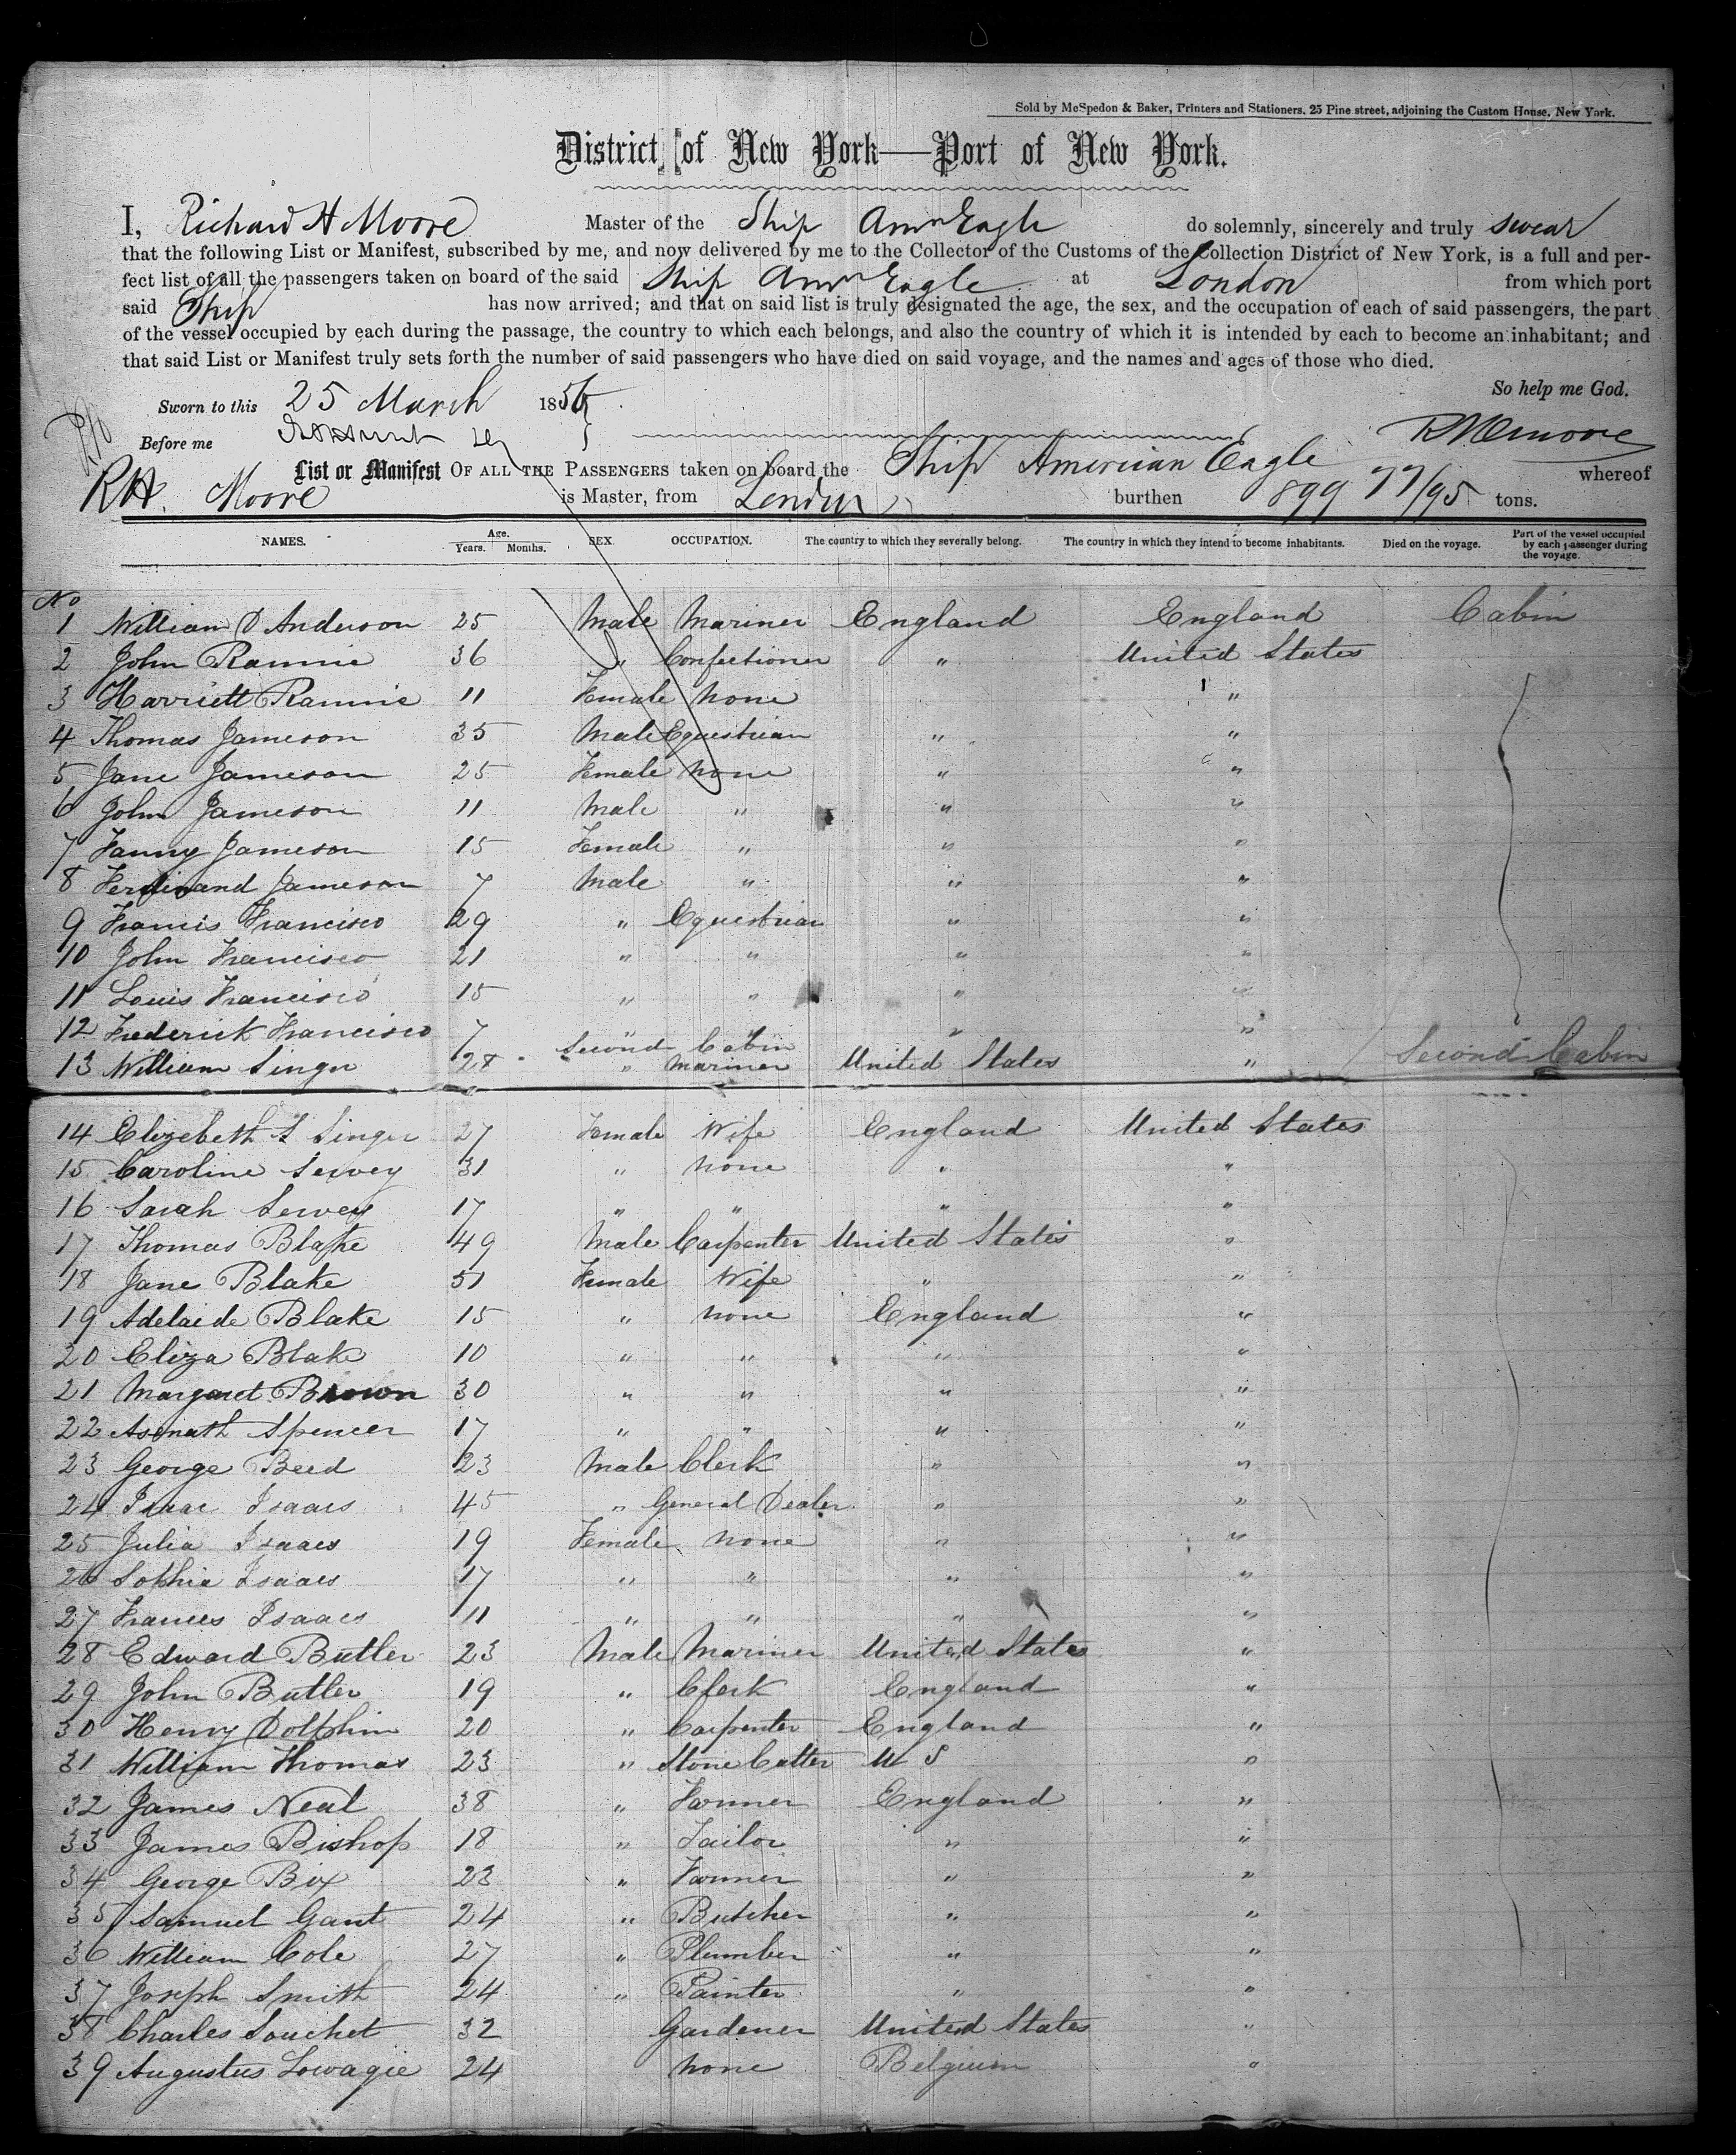 Sold by McSpedon & Baker, Printers and Stationers, 25 Pine street, adjoining the Custom House, New York.
District of New York—Port of New York.
I, Richard H Moore Master of the Ship Amn Eagle do solemnly, sincerely and truly swear
that the following List or Manifest, subscribed by me, and now delivered by me to the Collector of the Customs of the Collection District of New York, is a full and per-
fect list of all the passengers taken on board of the said Ship Amn Eagle at London from which port
said Ship has now arrived; and that on said list is truly designated the age, the sex, and the occupation of each of said passengers, the part
of the vessel occupied by each during the passage, the country to which each belongs, and also the country of which it is intended by each to become an inhabitant; and
that said List or Manifest truly sets forth the number of said passengers who have died on said voyage, and the names and ages of those who died.
So help me God.
Sworn to this 25 March 1856
Before me
R H Moore
List or Manifest OF ALL THE PASSENGERS taken on board the Ship American Eagle whereof
RH. Moore is Master, from London burthen 899 77/95 tons.
NAMES. Age. Years. Months. SEX. OCCUPATION. The country to which they severally belong. The country in which they intend to become inhabitants. Died on the voyage. Part of the vessel occupied by each passenger during the voyage.
No
1 William D Anderson 25 Male Mariner England England Cabin
2 John Rannie 36 " Confectioner " United States
3 Harriett Rannie 11 Female None "
4 Thomas Jameson 35 Male Equestrian " "
5 Jane Jameson 25 Female None " "
6 John Jameson 11 Male " " "
7 Fanny Jameson 15 Female " " "
8 Ferdinand Jameson 7 Male " " "
9 Francis Francisco 29 " Equestrian " "
10 John Francisco 21 " " " "
11 Louis Francisco 15 " " " "
12 Frederick Francisco 7 " " " "
Second Cabin
13 William Singer 28 " Mariner United States " Second Cabin
14 Elizebeth S Singer 27 Female Wife England United States
15 Caroline Sewey 31 " None " "
16 Sarah Sewey 17 " " " "
17 Thomas Blake 49 Male Carpenter United States "
18 Jane Blake 51 Female Wife " "
19 Adelaide Blake 15 " None England "
20 Eliza Blake 10 " " " "
21 Margaret Brown 30 " " " "
22 Asenath Spencer 17 " " " "
23 George Beed 23 Male Clerk " "
24 Isaac Isaacs 45 " General Dealer " "
25 Julia Isaacs 19 Female None " "
26 Sophia Isaacs 17 " " " "
27 Frances Isaacs 11 " " " "
28 Edward Butler 23 Male Mariner United States "
29 John Butler 19 " Clerk England "
30 Henry Dolphin 20 " Carpenter England "
31 William Thomas 23 " Stone Cutter U S "
32 James Neal 38 " Farmer England "
33 James Bishop 18 " Tailor " "
34 George Bix 23 " Farmer " "
35 Samuel Gant 24 " Butcher " "
36 William Cole 27 " Plumber " "
37 Joseph Smith 24 " Painter " "
38 Charles Souchet 32 Gardener United States "
39 Augustus Lowagie 24 None Belgium "